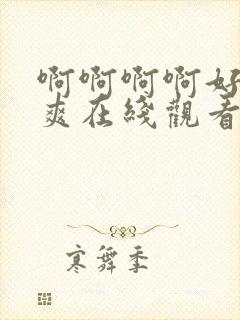 啊啊啊啊好
爽在綫觀看
寒舞季